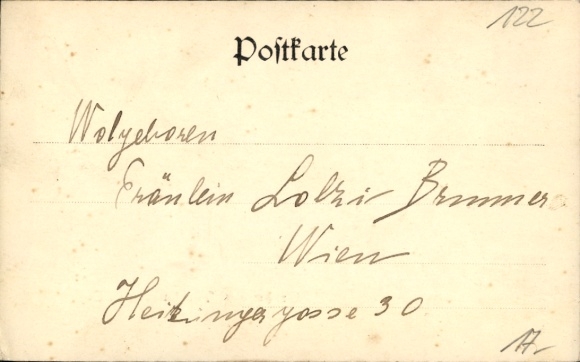 122
Postkarte
Wolgeboren
Fräulein Loltzi Brunner
Wien
Heitzingergasse 30
17.-